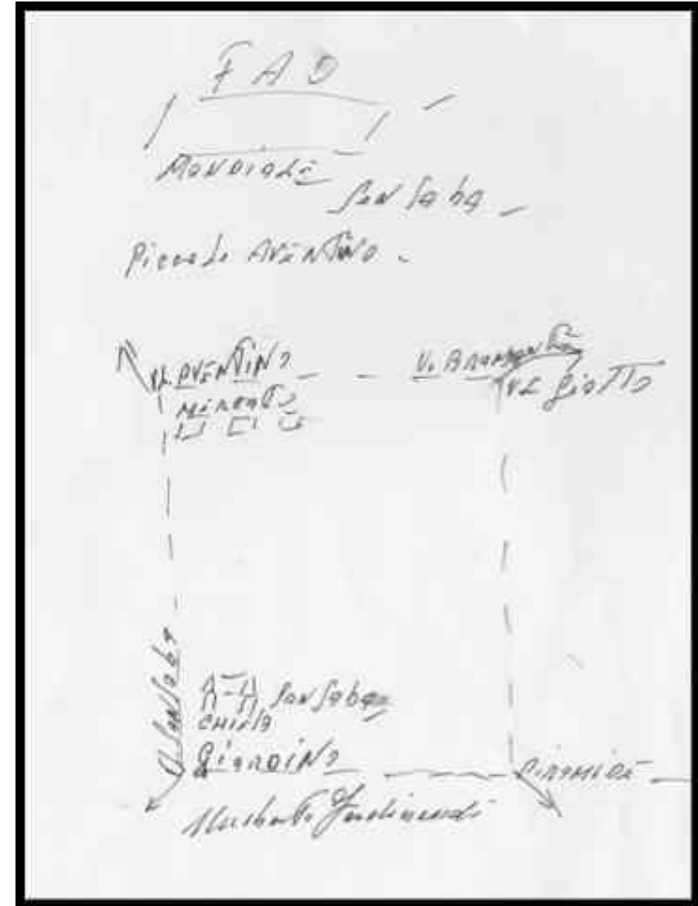 FAO
MONDIALE
San Saba
Piccolo AVENTINO
VL AVENTINO
V. BRAMANTE
MERCATO
VL GIOTTO
V SAN SABA
San Saba
CHIESA
GIARDINO
PIRAMIDE